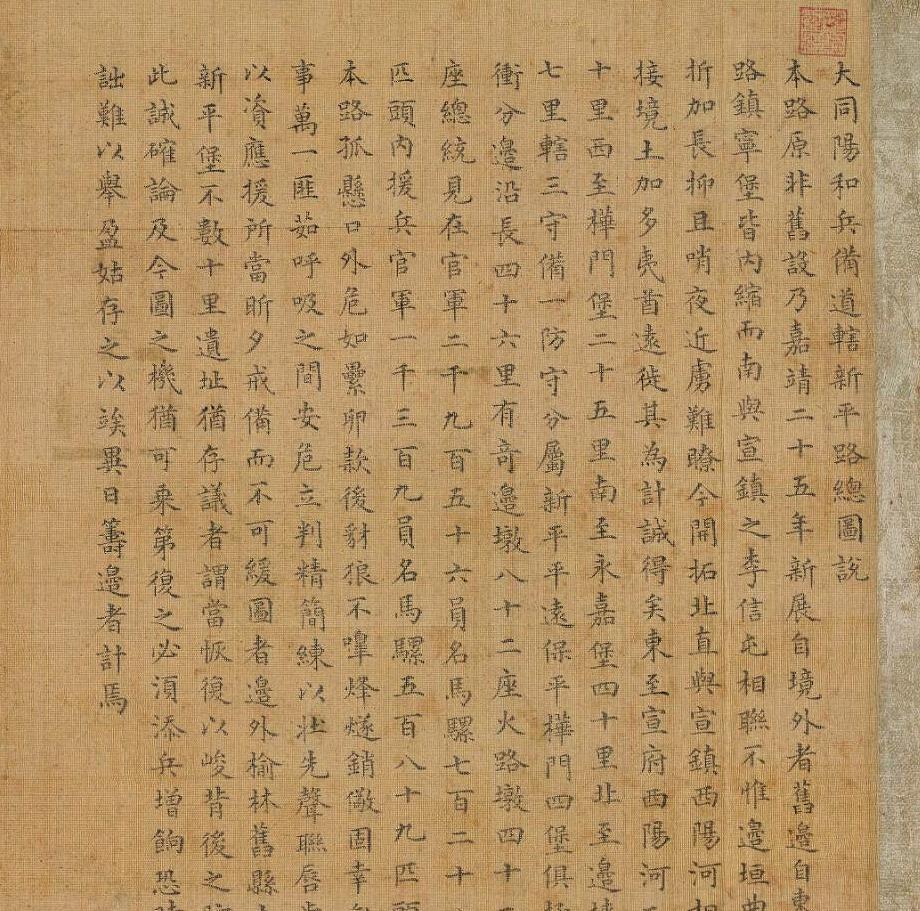 大同陽和兵備道轄新平路總圖說
本路原非舊設乃嘉靖二十五年新展自境外者舊邊自東
路鎮寧堡皆內縮而南與宣鎮之李信屯相聯不惟邊垣曲
折加長抑且哨夜近虜難瞭今開拓北直與宣鎮西陽河相
接境土加多夷酋遠徙其為計誠得矣東至宣府西陽河
十里西至樺門堡二十五里南至永嘉堡四十里北至邊
七里轄三守備一防守分屬新平平遠保平樺門四堡俱
衝分邊沿長四十六里有奇邊墩八十二座火路墩四十
座總統見在官軍二千九百五十六員名馬騾七百二十
匹頭內援兵官軍一千三百九員名馬騾五百八十九匹頭
本路孤懸口外危如纍卵款後豺狼不嘷烽燧銷儆固幸
事萬一匪茹呼吸之間安危立判精簡練以壯先聲聯唇
以資應援所當昕夕戒備而不可緩圖者邊外榆林舊縣
新平堡不數十里遺址猶存議者謂當恢復以峻背後之
此誠確論及今圖之機猶可乘第復之必須添兵增餉恐
詘難以舉盈姑存之以竢異日籌邊者計焉